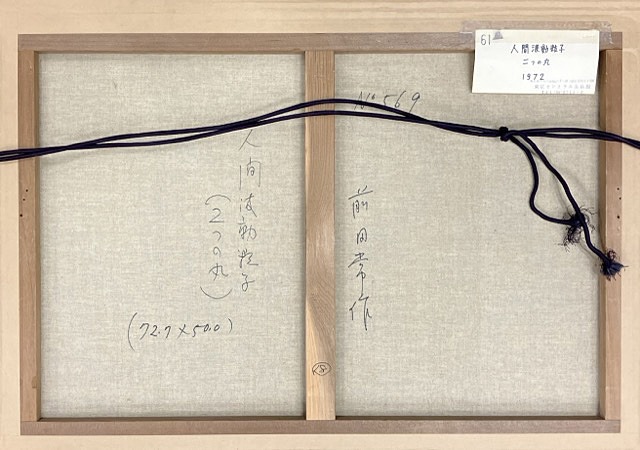 61
人間波動粒子
二つの丸
1972
No 569
人間波動粒子
(2つの丸)
(72.7×50.0)
前田常作